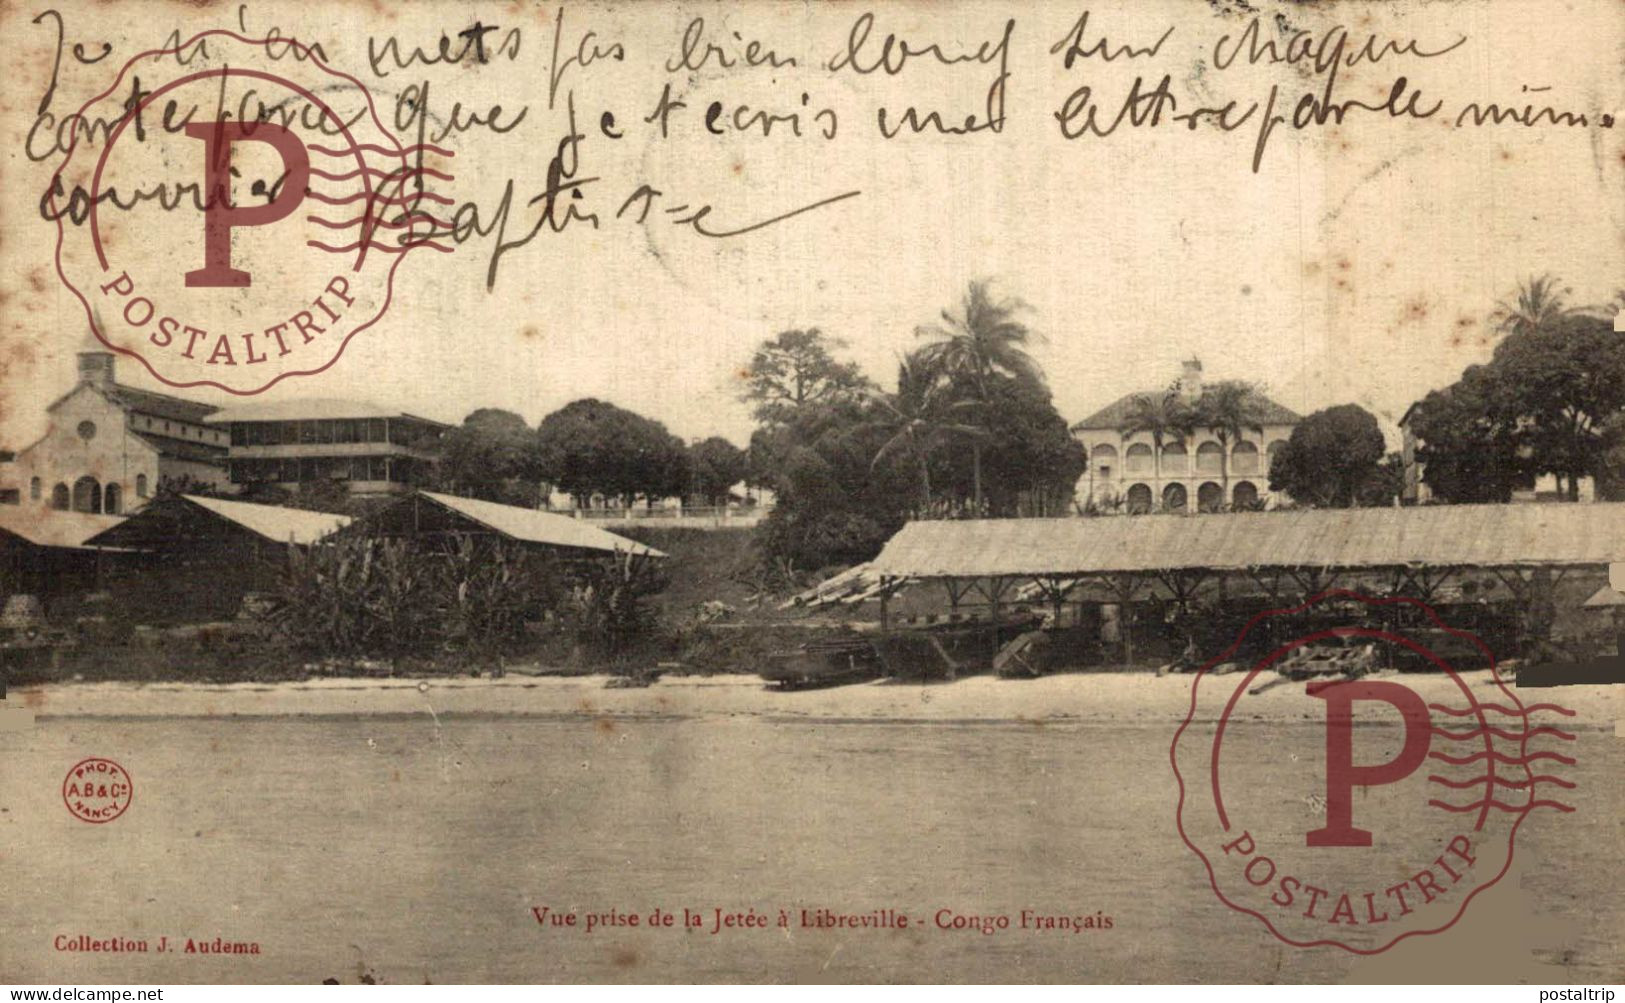 Je n'en mets pas bien long sur chaque
carte parce que je t'ecris une lettre par le même
courrier Baptiste
P
POSTALTRIP
PHOT.
A.B & Cie
NANCY
P
POSTALTRIP
Vue prise de la Jetée à Libreville - Congo Français
Collection J. Audema
www.delcampe.net
postaltrip